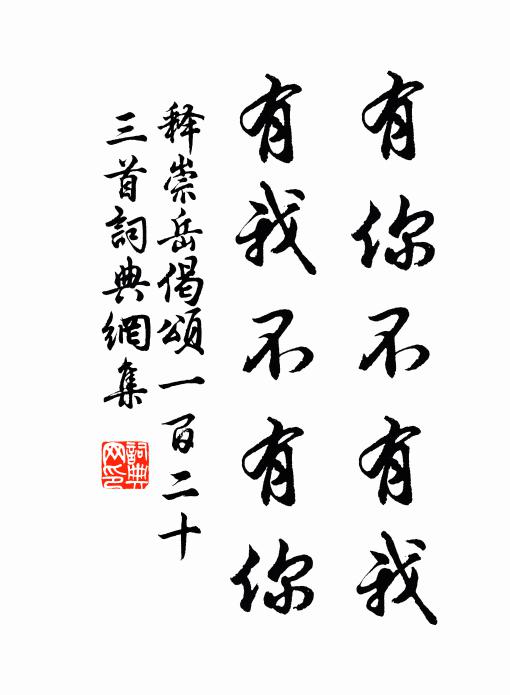 有你不有我
有我不有你
释崇岳偈頌一百二十
三首詞典網集
詞典
网印